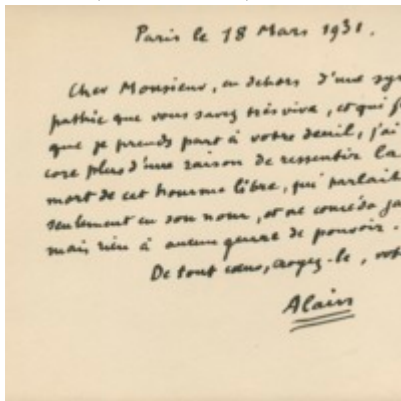 Paris le 18 Mars 1931.
Cher Monsieur, en dehors d'une sym
pathie que vous savez très vive, et qui f
que je prends part à votre deuil, j'ai
core plus d'une raison de ressentir la
mort de cet homme libre, qui parlait
seulement en son nom, et ne concéda ja
mais rien à aucun genre de pouvoir.
De tout cœur, croyez-le, vot
Alain